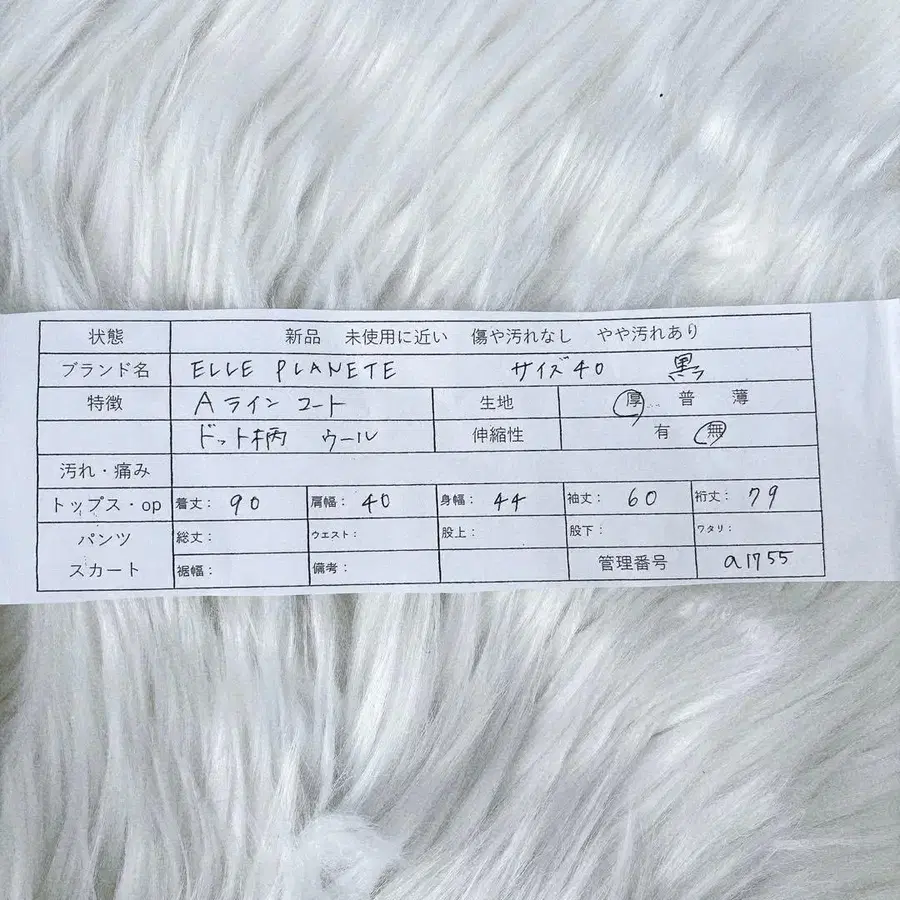 状態 新品 未使用に近い 傷や汚れなし やや汚れあり
ブランド名 ELLE PLANETE サイズ40 黒
特徴 Aラインコート 生地 厚 普 薄
ドット柄 ウール 伸縮性 有 無
汚れ・痛み
トップス・op 着丈: 90 肩幅: 40 身幅: 44 袖丈: 60 裄丈: 79
パンツ 総丈: ウエスト: 股上: 股下: ワタリ:
スカート 裾幅: 備考: 管理番号 a1755